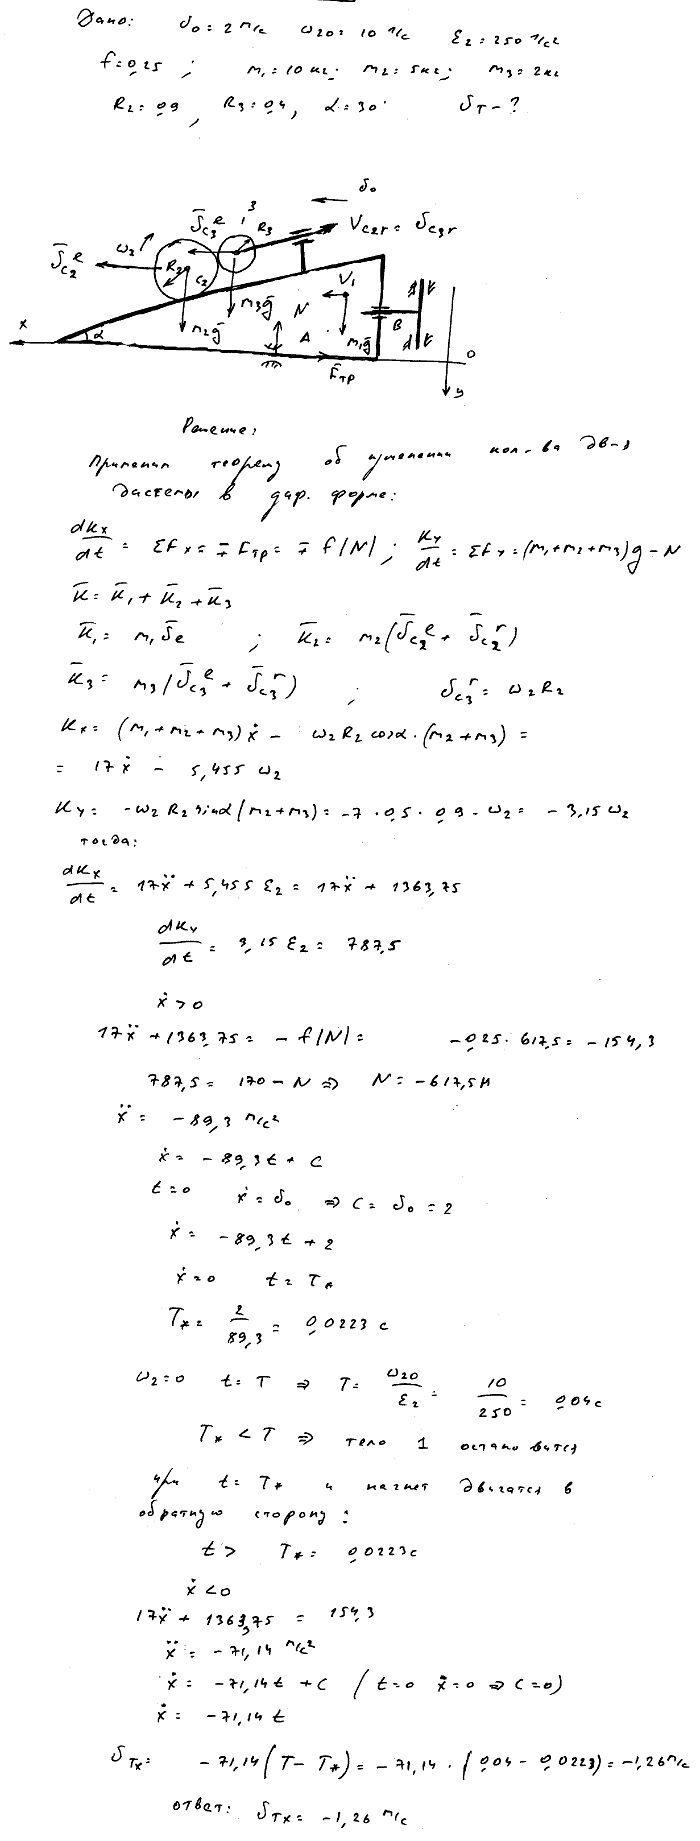 Дано: υ₀ = 2 м/с ω₂₀ = 10 1/с ε₂ = 250 1/с²
f = 0,25 ; m₁ = 10 кг; m₂ = 5 кг; m₃ = 2 кг
R₂ = 0,9 , R₃ = 0,4 , α = 30° υT - ?
υ₀
3
ῡc₃ᵉ R₃ Vc₂r = υc₃r
ῡc₂ᵉ ω₂ R₂ c₂
V₁
m₃ḡ N
x α m₂ḡ A m₁ḡ B 0
F̄тр
y
Решение:
Применим теорему об изменении кол-ва дв-я
системы в диф. форме:
dKx/dt = ΣFx = ∓Fтр = ∓f|N| ; Ky/dt = ΣFy = (m₁+m₂+m₃)g - N
K̄ = K̄₁ + K̄₂ + K̄₃
K̄₁ = m₁ῡe ; K̄₂ = m₂(ῡc₂ᵉ + ῡc₂ʳ)
K̄₃ = m₃(ῡc₃ᵉ + ῡc₃ʳ) ; υc₃ʳ = ω₂R₂
Kx = (m₁+m₂+m₃)ẋ - ω₂R₂cosα·(m₂+m₃) =
= 17ẋ - 5,455 ω₂
Ky = -ω₂R₂sinα(m₂+m₃) = -7·0,5·0,9·ω₂ = -3,15ω₂
тогда:
dKx/dt = 17ẍ + 5,455 ε₂ = 17ẍ + 1363,75
dKy/dt = 3,15 ε₂ = 787,5
ẋ > 0
17ẍ + 1363,75 = -f|N| = -0,25·617,5 = -154,3
787,5 = 170 - N ⇒ N = -617,5 Н
ẍ = -89,3 м/с²
ẋ = -89,3t + C
t = 0 ẋ = υ₀ ⇒ C = υ₀ = 2
ẋ = -89,3t + 2
ẋ = 0 t = T*
T* = 2/89,3 = 0,0223 с
ω₂ = 0 t = T ⇒ T = ω₂₀/ε₂ = 10/250 = 0,04 с
T* < T ⇒ тело 1 остановится
при t = T* и начнет двигатся в
обратную сторону:
t > T* = 0,0223 с
ẋ < 0
17ẍ + 1363,75 = 154,3
ẍ = -71,14 м/с²
ẋ = -71,14t + C ( t = 0 ẋ = 0 ⇒ C = 0)
ẋ = -71,14 t
υTx = -71,14(T - T*) = -71,14·(0,04 - 0,0223) = -1,26 м/с
ответ: υTx = -1,26 м/с